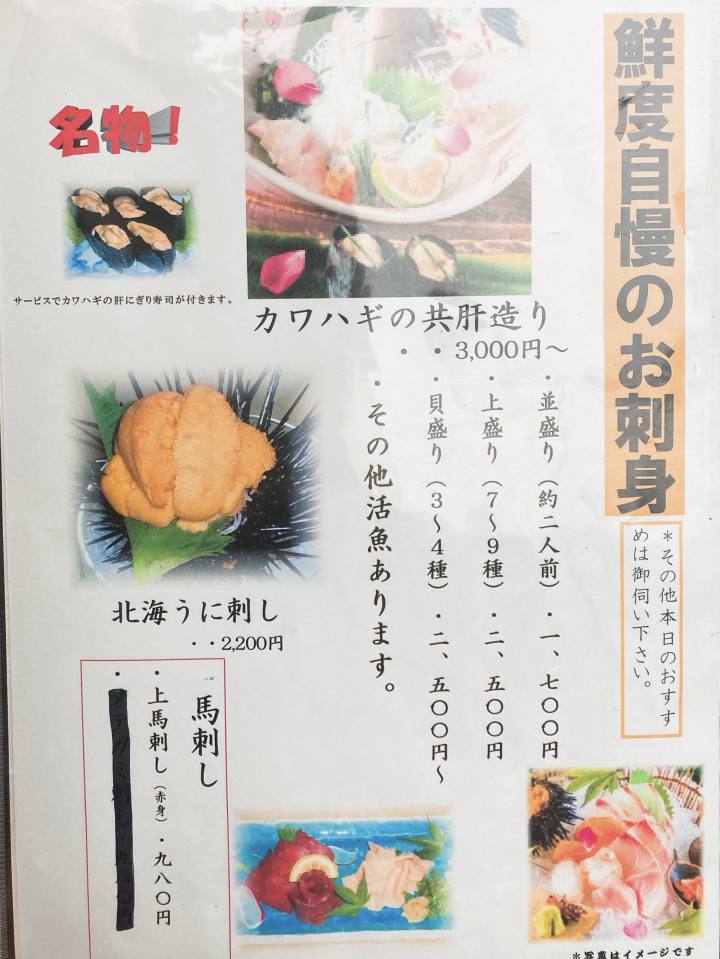 鮮度自慢のお刺身
*その他本日のおすす
めは御伺い下さい。
名物！
サービスでカワハギの肝にぎり寿司が付きます。
カワハギの共肝造り
・・3,000円〜
・並盛り（約二人前）・一、七〇〇円
・上盛り（7〜9種）・二、五〇〇円
・貝盛り（3〜4種）・二、五〇〇円〜
・その他活魚あります。
北海うに刺し
・・2,200円
馬刺し
・上馬刺し（赤身）・九八〇円
*写真はイメージです